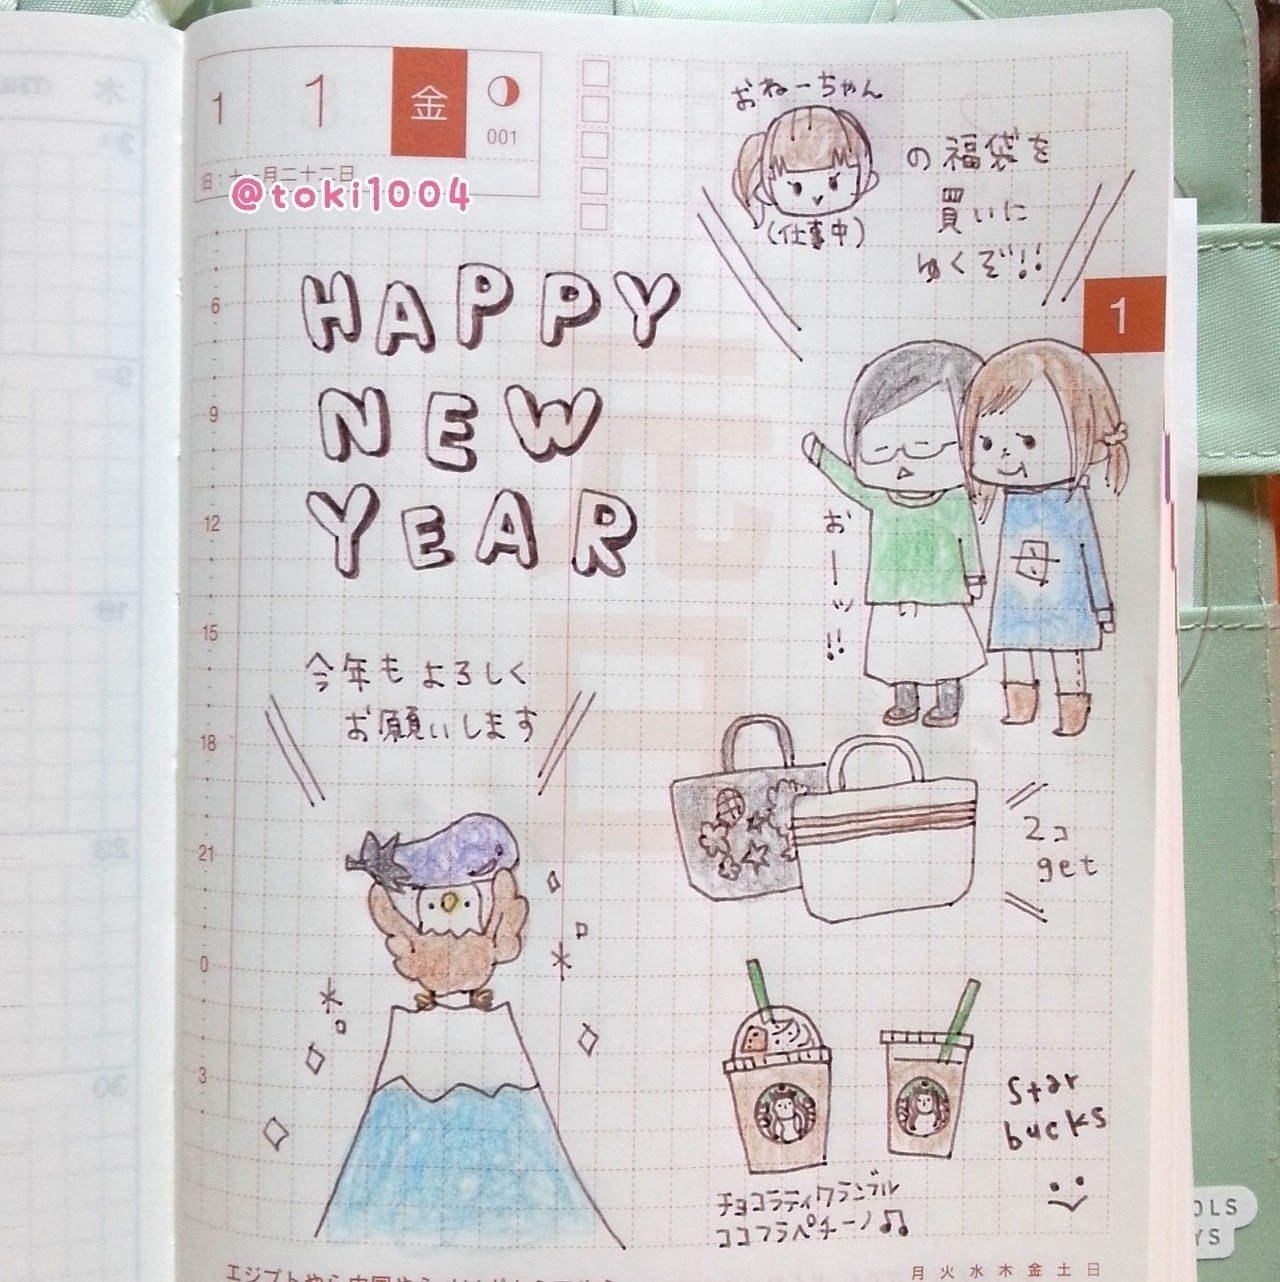 1 1 金
001
旧:十一月二十二日
@toki1004
おねーちゃん
の福袋を
買いに
ゆくぞ!!
(仕事中)
HAPPY
NEW
YEAR
1
6
9
12
15
18
21
0
3
元
日
母
い
おーッ!!
今年もよろしく
お願いします
2コ
get
Star
bucks
チョコラティクランブル
ココフラペチーノ♫
月火水木金土日
OLS
YS
木